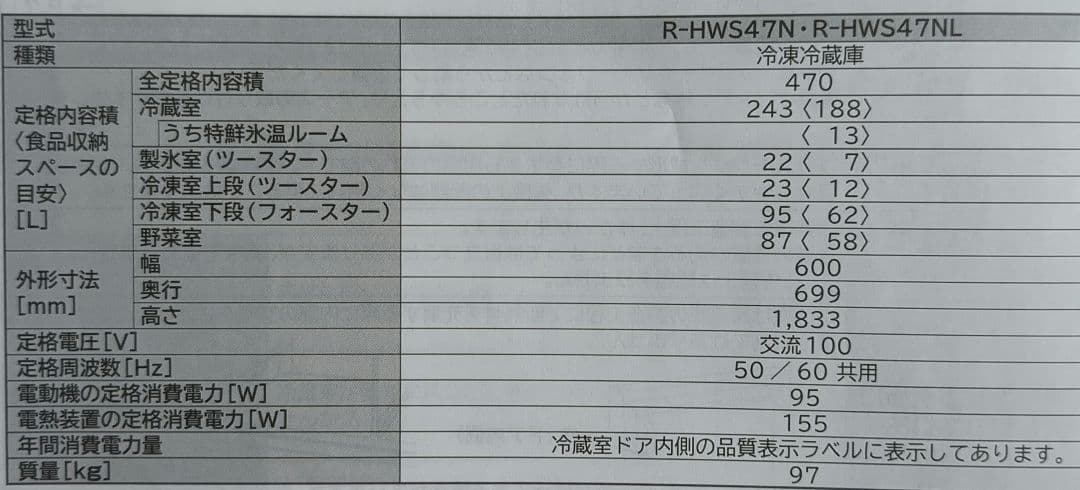 型式 R-HWS47N・R-HWS47NL
種類 冷凍冷蔵庫
定格内容積
〈食品収納
スペースの
目安〉
[L]
全定格内容積 470
冷蔵室 243〈188〉
うち特鮮氷温ルーム 〈 13〉
製氷室(ツースター) 22〈 7〉
冷凍室上段(ツースター) 23〈 12〉
冷凍室下段(フォースター) 95〈 62〉
野菜室 87〈 58〉
外形寸法
[mm]
幅 600
奥行 699
高さ 1,833
定格電圧[V] 交流100
定格周波数[Hz] 50／60 共用
電動機の定格消費電力[W] 95
電熱装置の定格消費電力[W] 155
年間消費電力量 冷蔵室ドア内側の品質表示ラベルに表示してあります。
質量[kg] 97